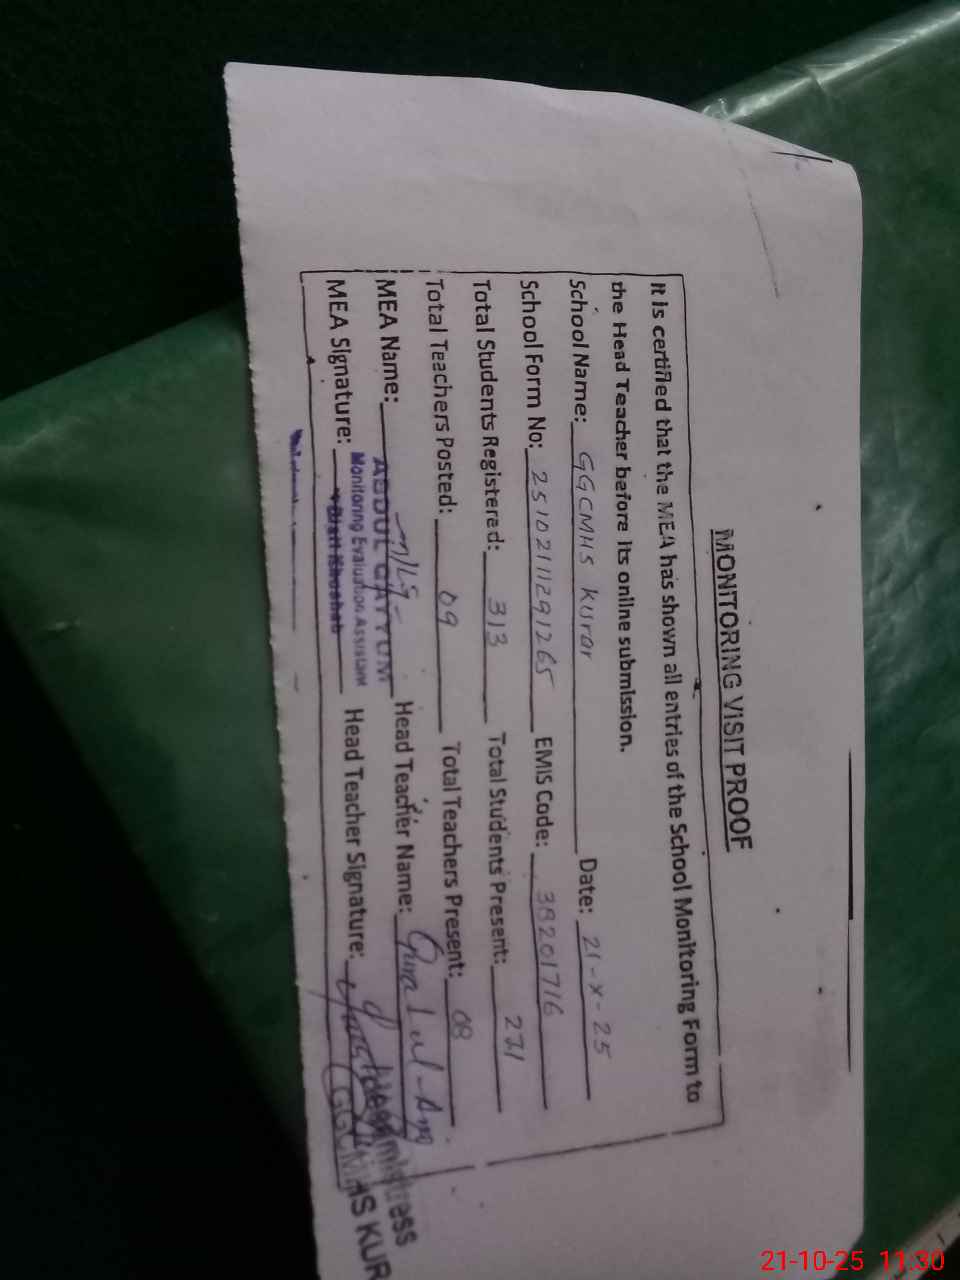 MONITORING VISIT PROOF
It is certified that the MEA has shown all entries of the School Monitoring Form to
the Head Teacher before its online submission.
School Name: GGCMHS Kurar Date: 21-X-25
School Form No: 25102111291265 EMIS Code: 38201716
Total Students Registered: 313 Total Students Present: 221
Total Teachers Posted: 09 Total Teachers Present: 08
MEA Name: ABDUL QAYYUM Head Teacher Name:
Monitoring Evaluation Assistant
MEA Signature: Distt Khushab Head Teacher Signature:
Headmistress
GGCMHS KUR
21-10-25 11:30